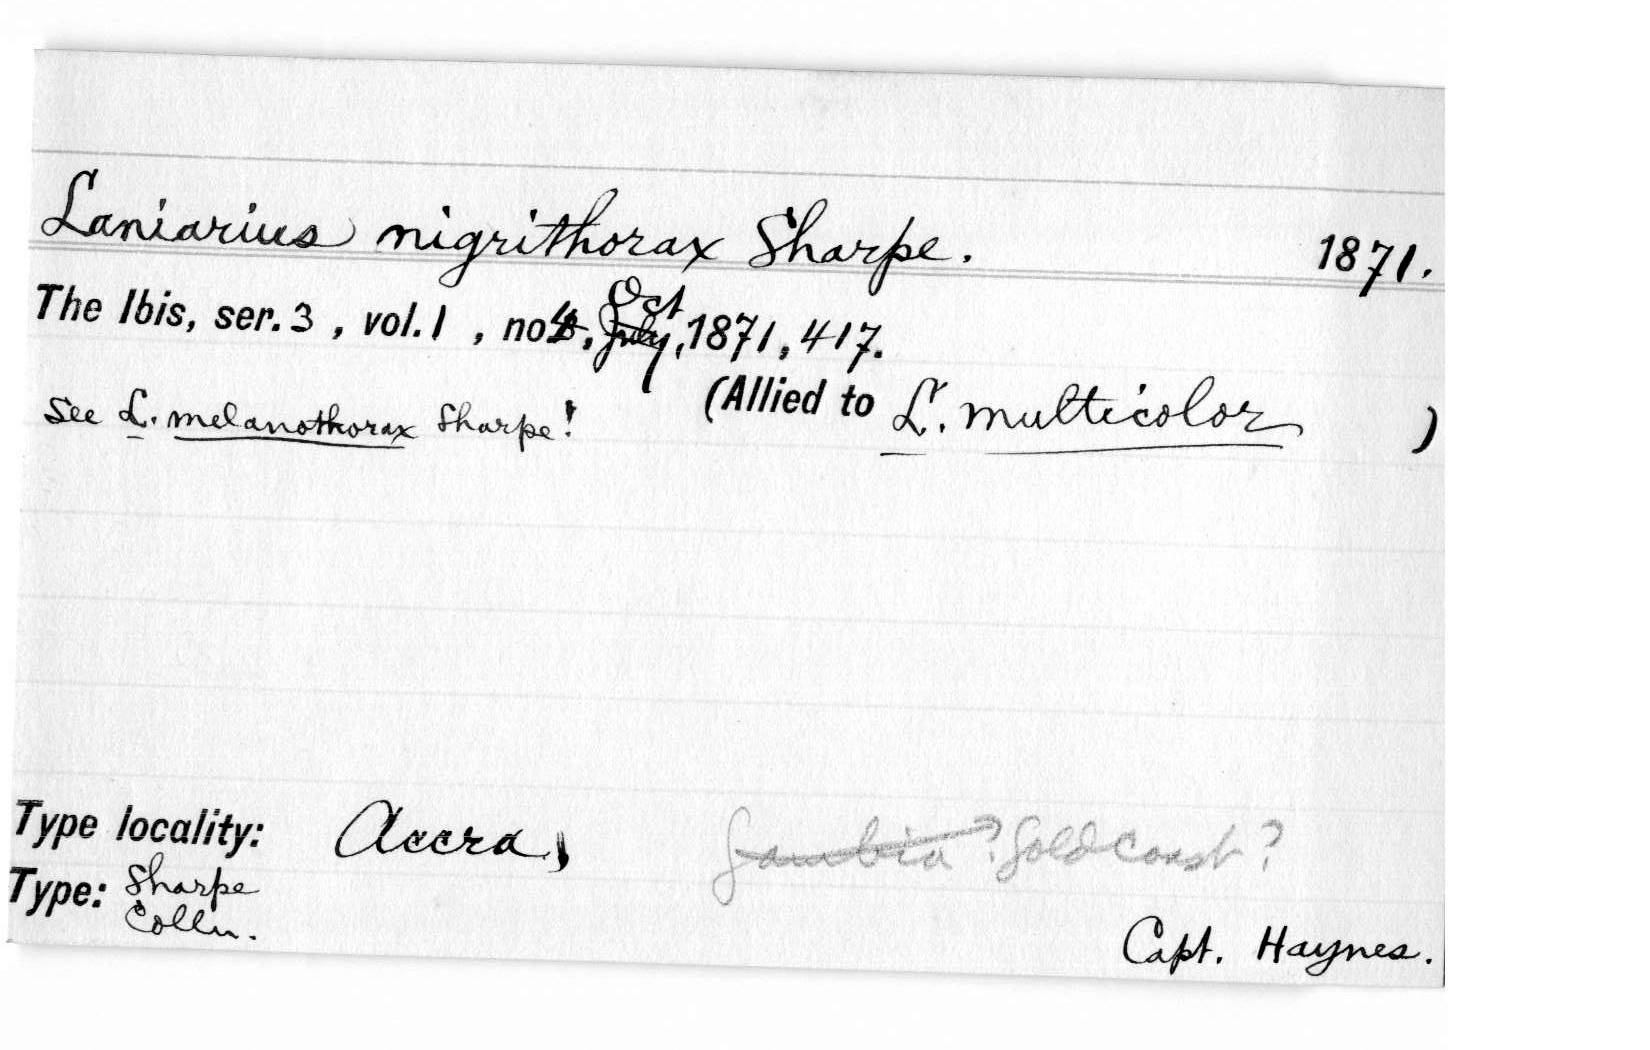 Laniarius nigrithorax Sharpe. 1871.
The Ibis, ser. 3 , vol. 1 , no. 4, July, Oct 1871, 417.
(Allied to L. multicolor )
See L. melanothorax Sharpe!
Type locality: Accra, Gambia? Gold Coast?
Type: Sharpe
Colln.
Capt. Haynes.